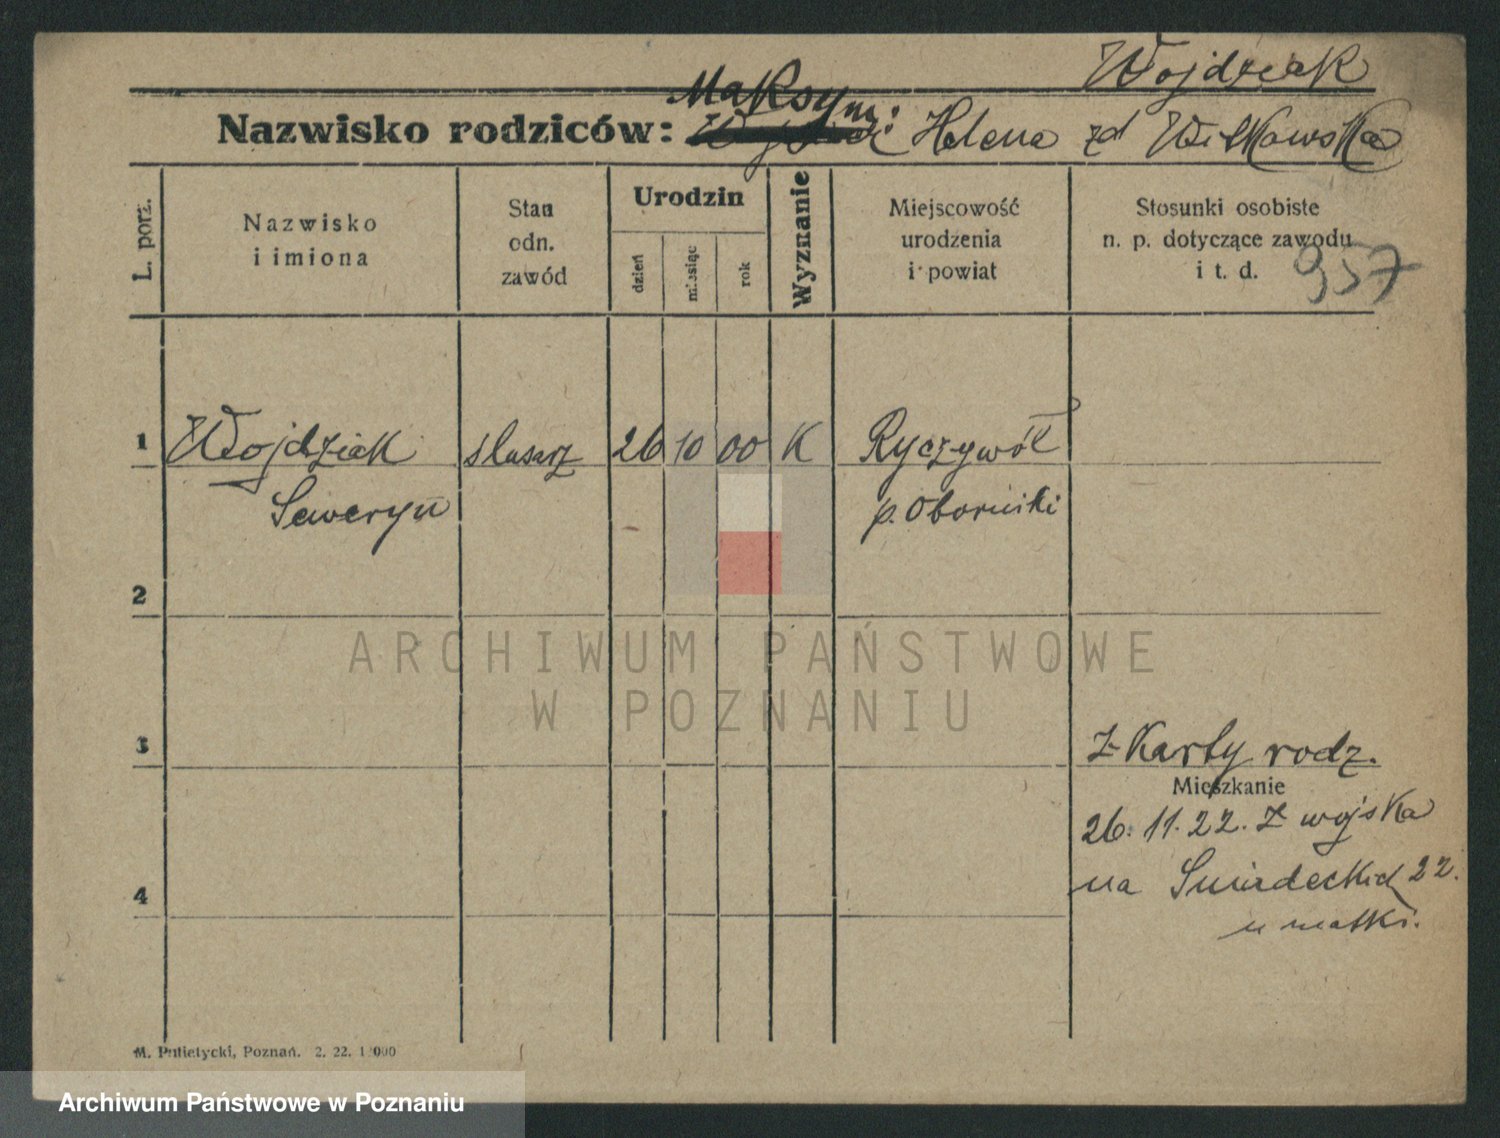 Wojdziak
Maksym:
Nazwisko rodziców: Helena zd Wilkowska
L. porz.
Nazwisko
i imiona
Stan
odn.
zawód
Urodzin
dzień
miesiąc
rok
Wyznanie
Miejscowość
urodzenia
i powiat
Stosunki osobiste
n. p. dotyczące zawodu
i t. d.
957
1 Wojdziak ślusarz 26 10 00 K Ryczywół
Seweryn p. Obornicki
2
3
Z Karty rodz.
Mieszkanie
26. 11. 22. Z wojska
4
na Śniadeckich 22.
u matki.
M. Putietycki, Poznań. 2. 22.
ARCHIWUM PAŃSTWOWE
W POZNANIU
Archiwum Państwowe w Poznaniu